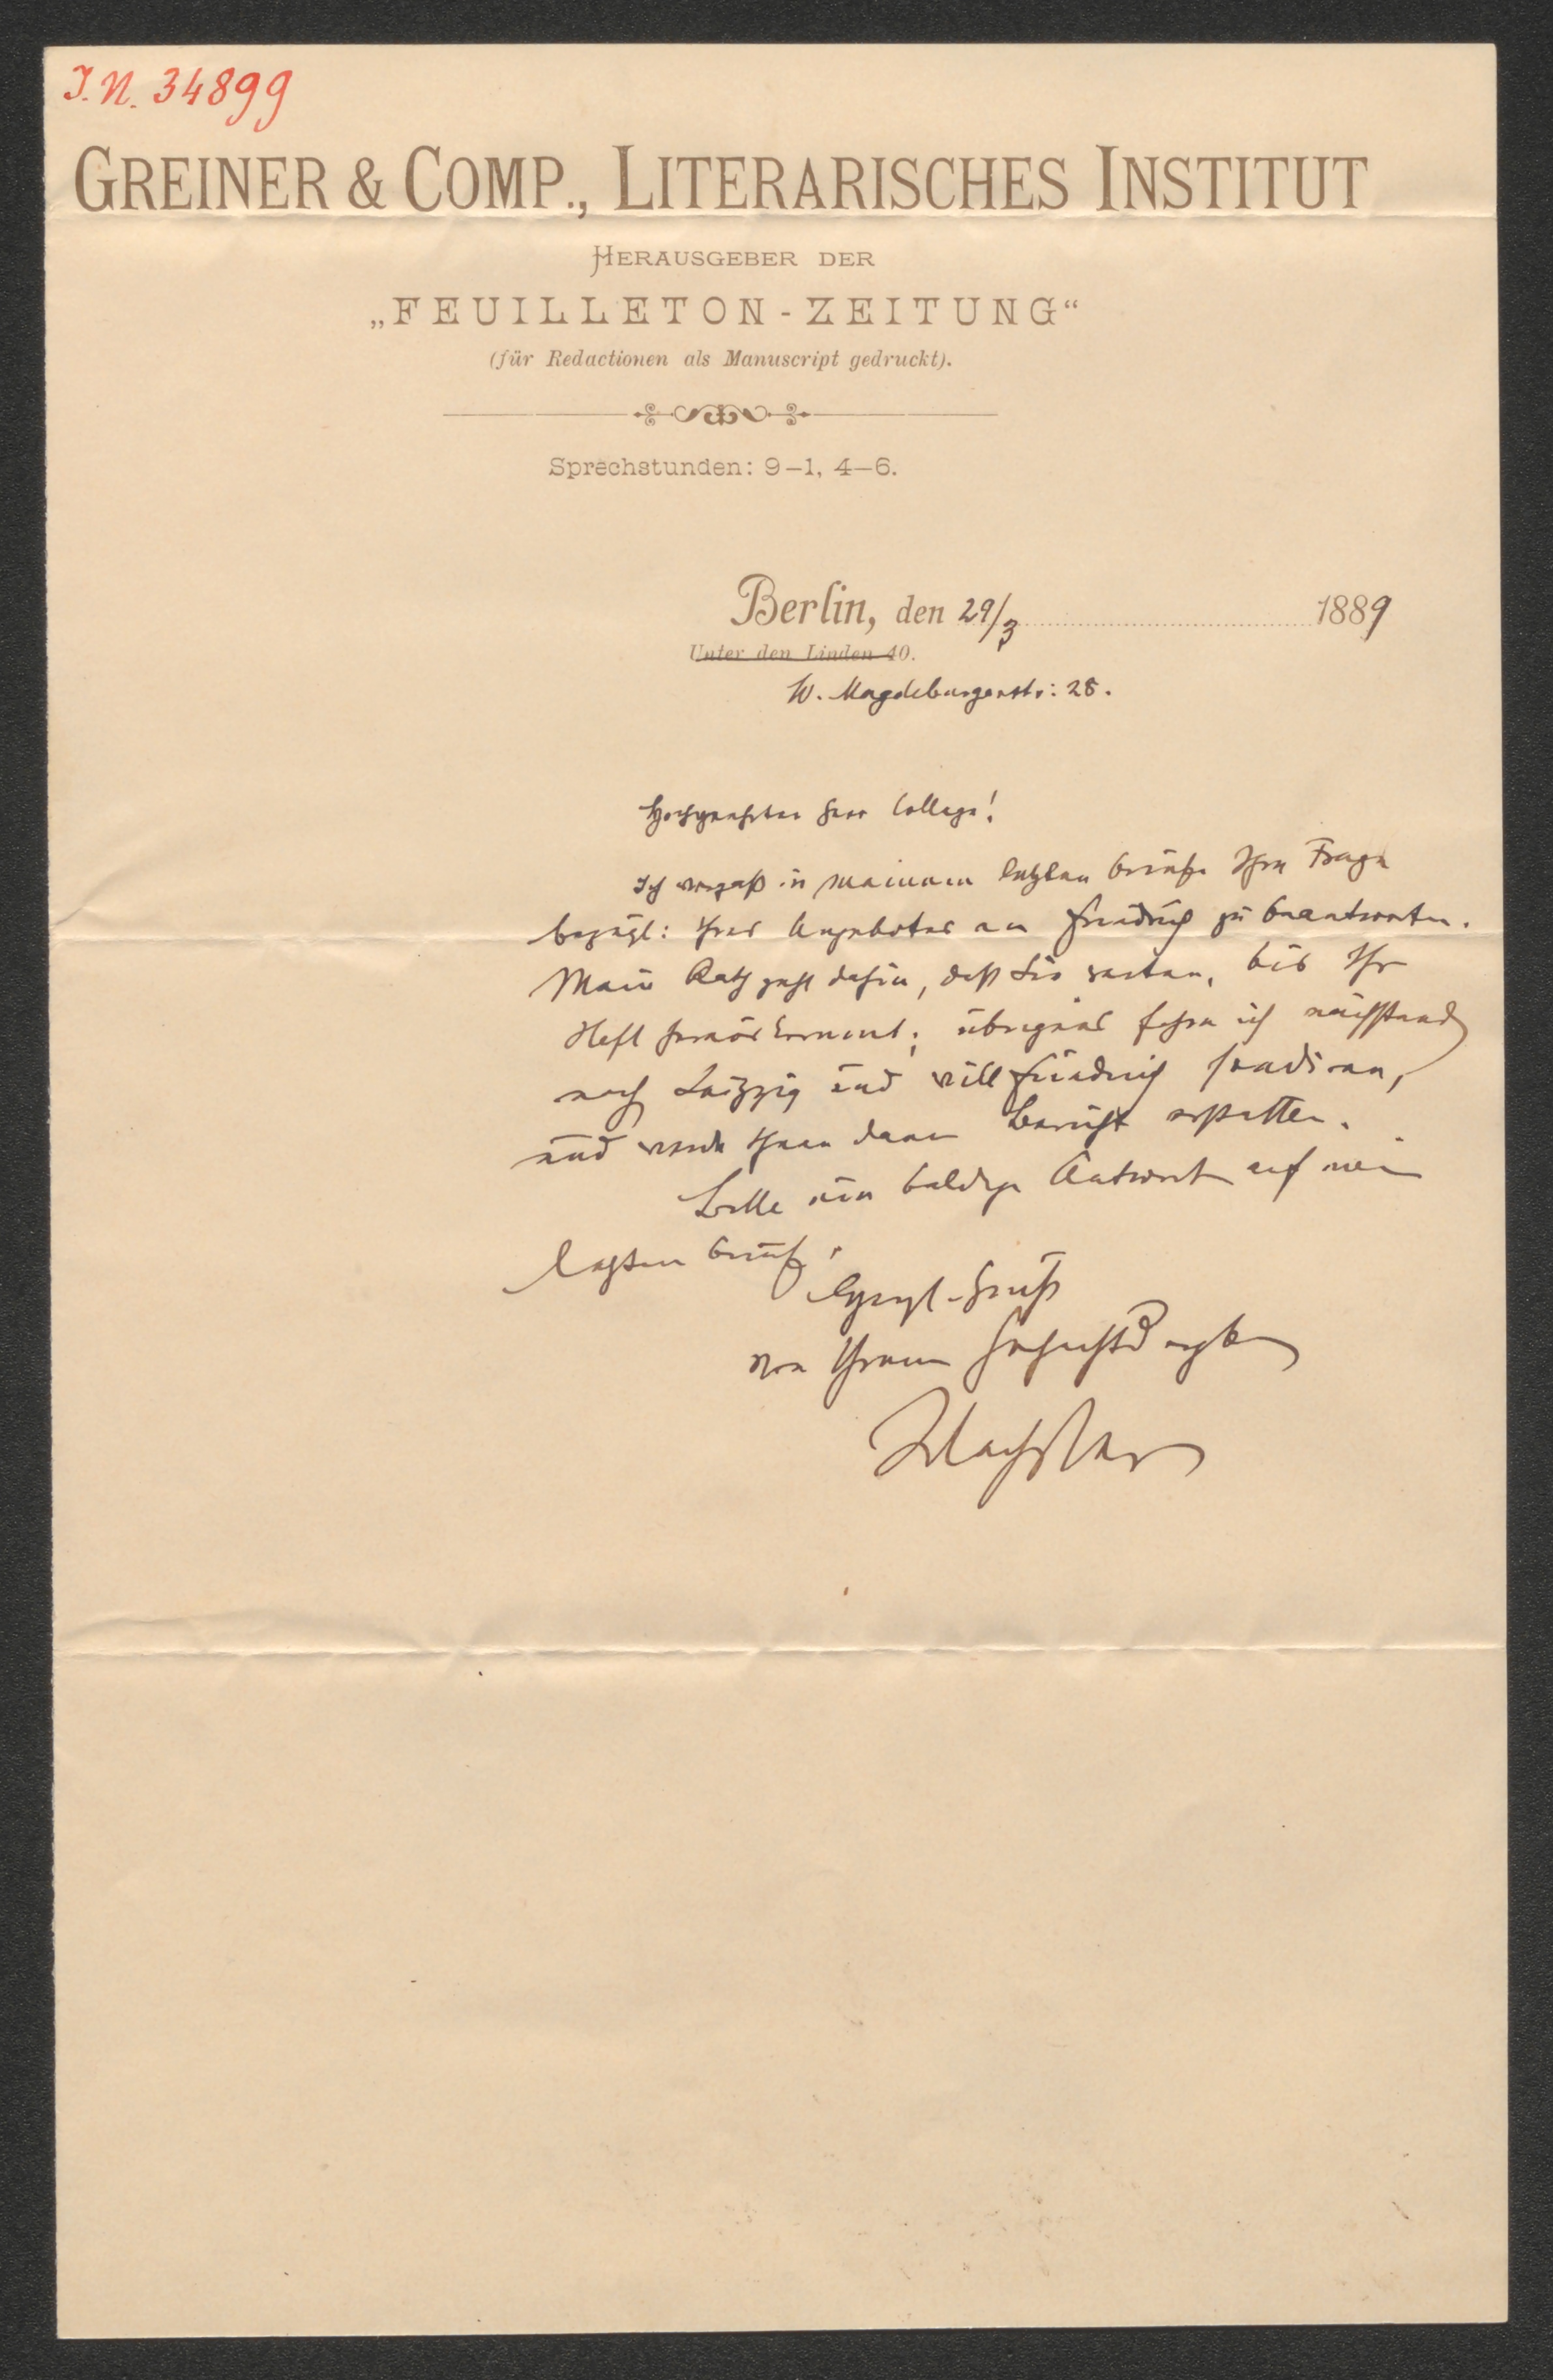 I. N. 34899
GREINER & COMP., LITERARISCHES INSTITUT
HERAUSGEBER DER
„FEUILLETON-ZEITUNG“
(für Redactionen als Manuscript gedruckt).
Sprechstunden: 9–1, 4–6.
Berlin, den 29/3 1889
Unter den Linden 40.
W. Magdeburgerstr: 28.
Hochgeehrter Herr College!
Ich vergaß in meinem letzten Briefe Ihre Frage
bezügl: Ihres Angebotes an Friedrich zu beantworten.
Mein Rath geht dahin, daß Sie warten, bis Ihr
Heft herauskommt; übrigens fahre ich nächstens
nach Leipzig und will Friedrich sondiren,
und werde Ihnen dann Bericht erstatten.
Bitte um baldige Antwort auf mein
letzten Brief.
Herzl. Gruß
von Ihrem